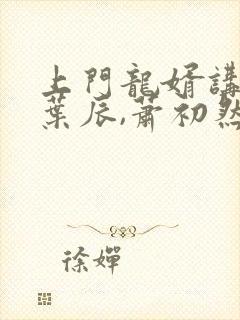 上門龍婿講
葉辰,蕭初然
徐嬋